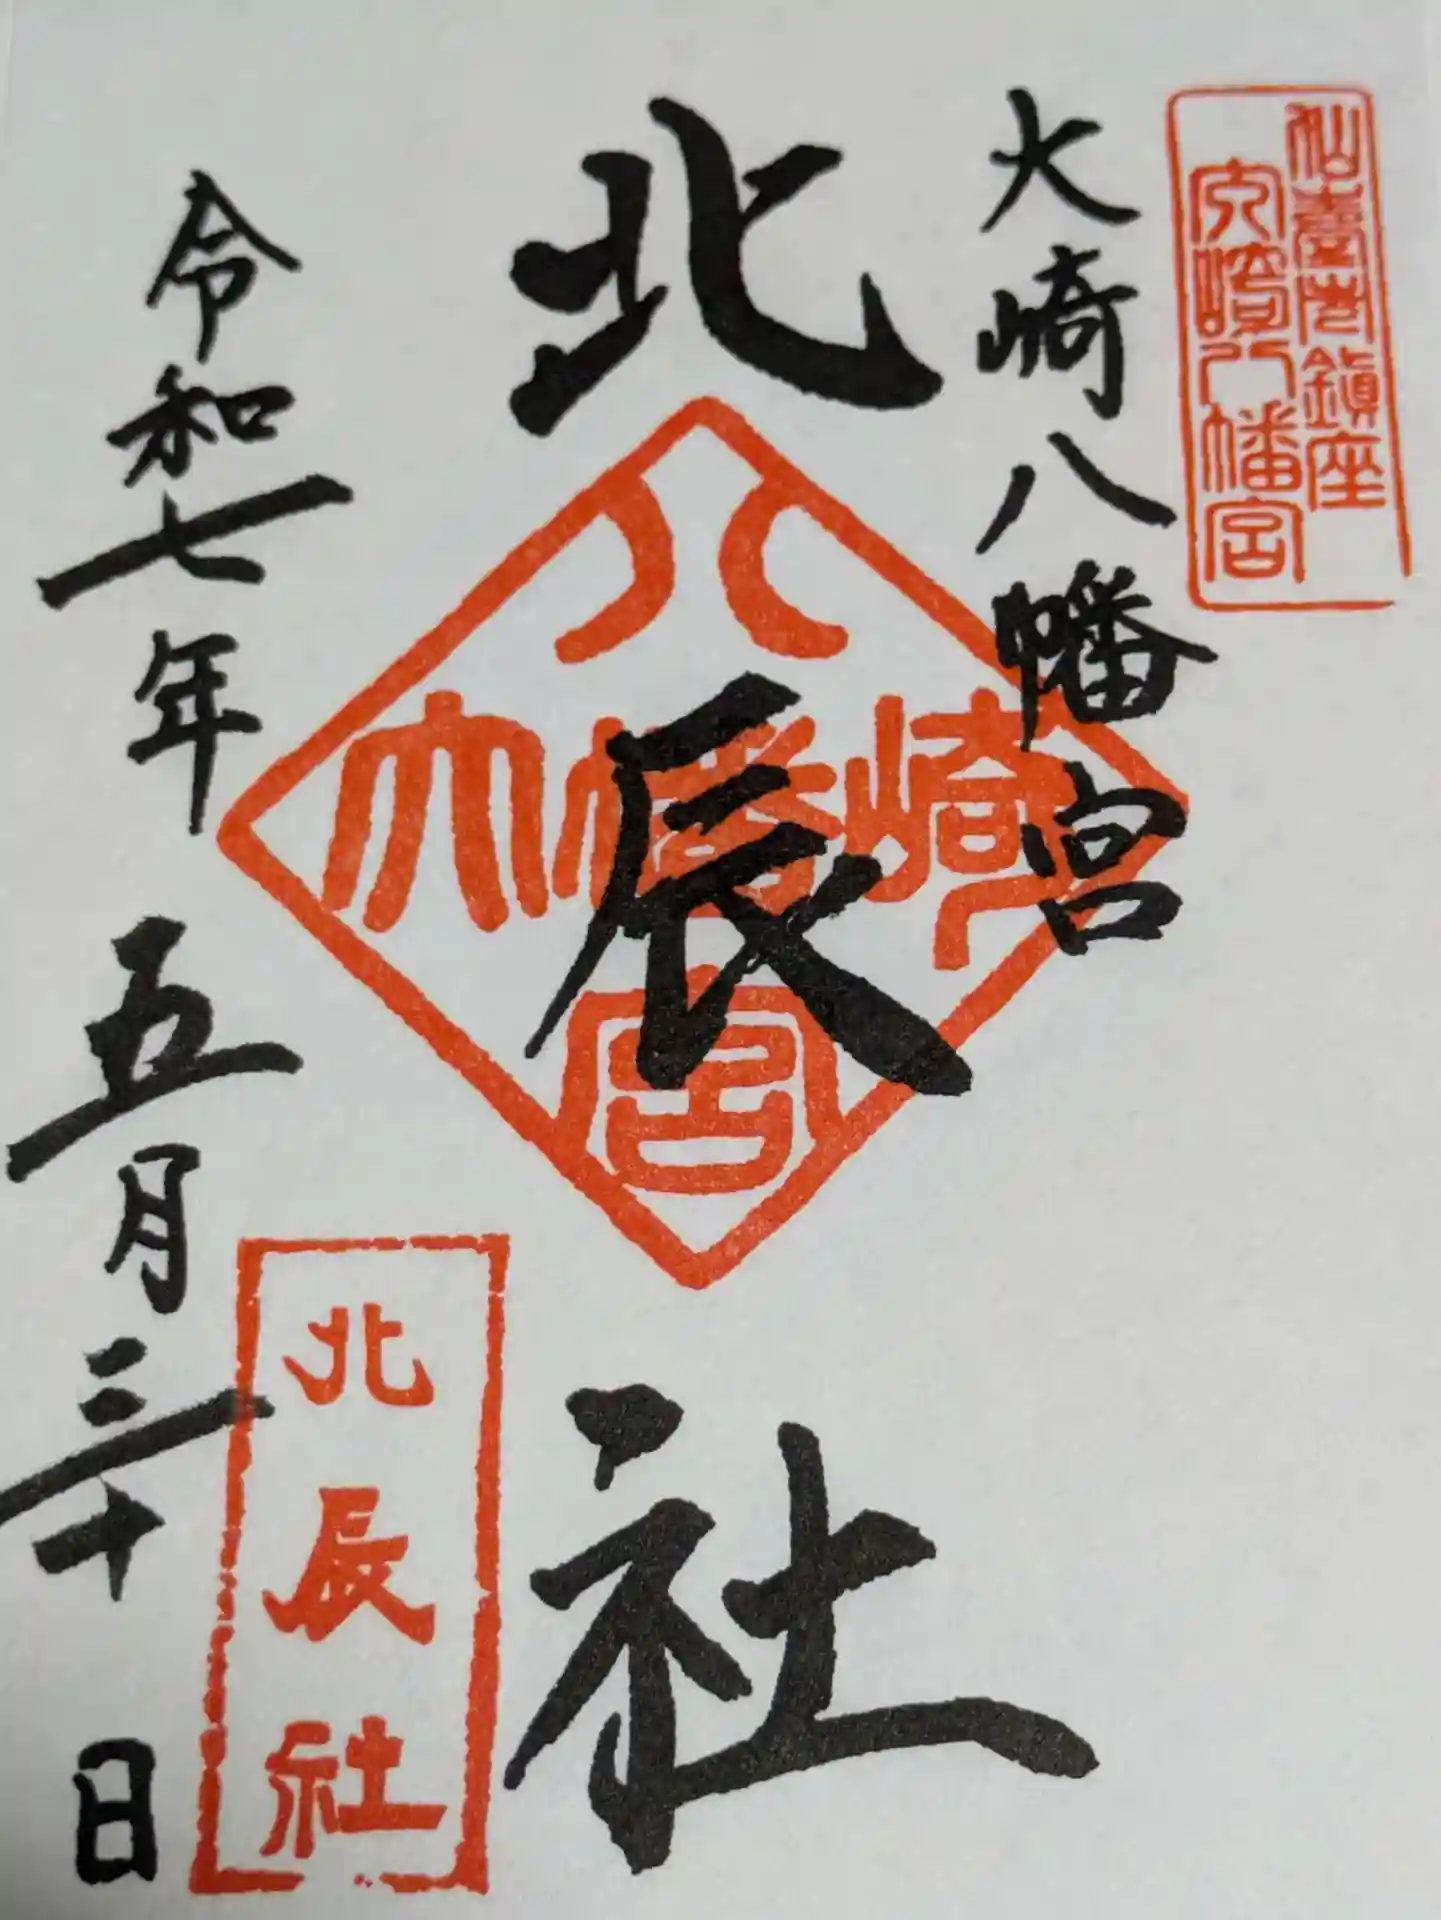 仙臺市鎮座
大崎八幡宮
大崎八幡宮
北辰社
八
大幡崎
宮
北辰社
令和七年五月三十日